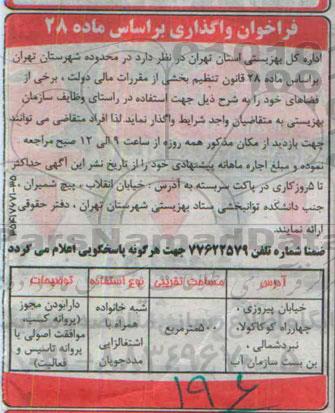 فراخوان واگذاری براساس ماده ۲۸
اداره کل بهزیستی استان تهران در نظر دارد در محدوده شهرستان تهران
براساس ماده ۲۸ قانون تنظیم بخشی از مقررات مالی دولت ، برخی از
فضاهای خود را به شرح ذیل جهت استفاده در راستای وظایف سازمان
بهزیستی به متقاضیان واجد شرایط واگذار نماید لذا افراد متقاضی می توانند
جهت بازدید از مکان مذکور همه روزه از ساعت ۹ الی ۱۲ صبح مراجعه
نموده و مبلغ اجاره ماهانه پیشنهادی خود را از تاریخ نشر این آگهی حداکثر
تا ۵روزکاری در پاکت سربسته به آدرس : خیابان انقلاب ، پیچ شمیران ،
جنب دانشکده توانبخشی ستاد بهزیستی شهرستان تهران ، دفتر حقوقی
ارائه نمایند.
ضمنا شماره تلفن ۷۷۶۲۲۵۷۹ جهت هرگونه پاسخگویی اعلام می گردد
آدرس مساحت تقریبی نوع استفاده توضیحات
خیابان پیروزی ،
چهارراه کوکاکولا،
نبردشمالی ،
بن بست سازمان آب
۵۰۰مترمربع
شبه خانواده
همراه با
اشتغالزایی
مددجویان
دارابودن مجوز
(پروانه کسب،
موافقت اصولی یا
پروانه تاسیس و
فعالیت)
۱۹۶